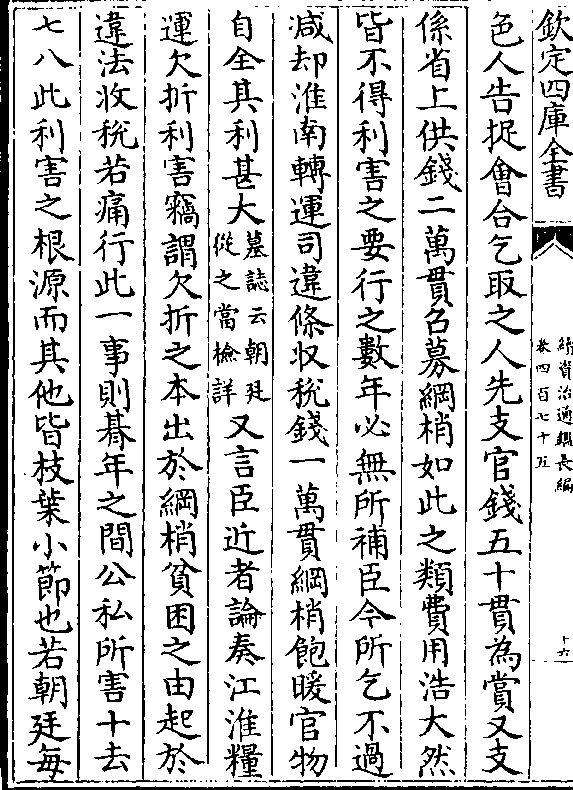 欽定四庫全書
續資治通鑑長編
卷四百七十五
十六
色人告捉會合乞取之人先支官錢五十貫為賞又支
係省上供錢二萬貫召募綱梢如此之類費用浩大然
皆不得利害之要行之數年必無所補臣今所乞不過
減却淮南轉運司違條收稅錢一萬貫綱梢飽暖官物
自全其利甚大墓誌云朝廷從之當檢詳又言臣近者論奏江淮糧
運欠折利害竊謂欠折之本出於綱梢貧困之由起於
違法收稅若痛行此一事則朞年之間公私所害十去
七八此利害之根源而其他皆枝葉小節也若朝廷每